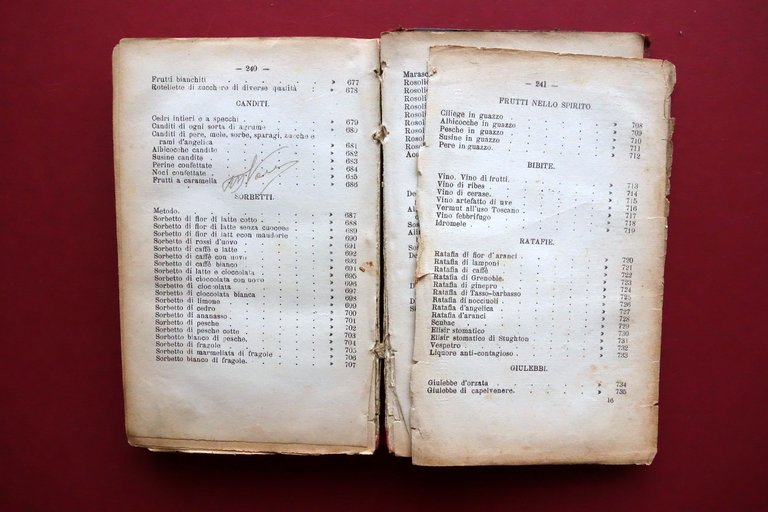 — 240 —
Frutti bianchiti . . . . . » 677
Rotellette di zucchero di diverse qualità . . » 678
CANDITI.
Cedri intieri e a specchi . . . . » 679
Canditi di ogni sorta di agrume . . . » 680
Canditi di pere, mele, sorbe, sparagi, zucche e
rami d'angelica . . . . . » 681
Albicocche candite . . . . . » 682
Susine candite . . . . . » 683
Perine confettate . . . . . » 684
Noci confettate . . . . . » 685
Frutti a caramella . . . . . » 686
SORBETTI.
Metodo. . . . . . » 687
Sorbetto di fior di latte cotto . . . . » 688
Sorbetto di fior di latte senza cuocere . . » 689
Sorbetto di fior di latt econ mandorle . . » 690
Sorbetto di rossi d'uovo . . . . » 691
Sorbetto di caffè e latte . . . . » 692
Sorbetto di caffè con uovo . . . . » 693
Sorbetto di caffè bianco . . . . » 694
Sorbetto di latte e cioccolata . . . » 695
Sorbetto di cioccolata con uovo . . . » 696
Sorbetto di cioccolata . . . . » 697
Sorbetto di cioccolata bianca . . . » 698
Sorbetto di limone . . . . . » 699
Sorbetto di cedro . . . . . » 700
Sorbetto di ananasso . . . . . » 701
Sorbetto di pesche . . . . . » 702
Sorbetto di pesche cotte . . . . » 703
Sorbetto bianco di pesche. . . . . » 704
Sorbetto di fragole . . . . . » 705
Sorbetto di marmellata di fragole . . . » 706
Sorbetto bianco di fragole. . . . . » 707
Marasc
Rosoli
Rosoli
Rosoli
Rosoli
Rosol
Rosol
Rosol
Rosol
— 241 —
FRUTTI NELLO SPIRITO.
Ciliege in guazzo . . . . . » 708
Albicocche in guazzo . . . . . » 709
Pesche in guazzo . . . . . » 710
Susine in guazzo . . . . . » 711
Pere in guazzo. . . . . . » 712
BIBITE.
Vino. Vino di frutti. . . . . » 713
Vino di ribes . . . . . » 714
Vino di cerase. . . . . . » 715
Vino artefatto di uve . . . . » 716
Vermut all'uso Toscano . . . . » 717
Vino febbrifugo . . . . . » 718
Idromele . . . . . » 719
RATAFIE.
Ratafia di fior d'aranci . . . . » 720
Ratafia di lamponi . . . . . » 721
Ratafia di caffè . . . . . » 722
Ratafia di Grenoble. . . . . » 723
Ratafia di ginepro . . . . . » 724
Ratafia di Tasso-barbasso . . . . » 725
Ratafia di nocciuoli . . . . . » 726
Ratafia d'angelica . . . . . » 727
Ratafia d'aranci . . . . . » 728
Scubac . . . . . » 729
Elisir stomatico . . . . . » 730
Elisir stomatico di Stughton . . . » 731
Vespetro . . . . . » 732
Liquore anti-contagioso . . . . » 733
GIULEBBI.
Giulebbe d'orzata . . . . . » 734
Giulebbe di capelvenere. . . . . » 735
16